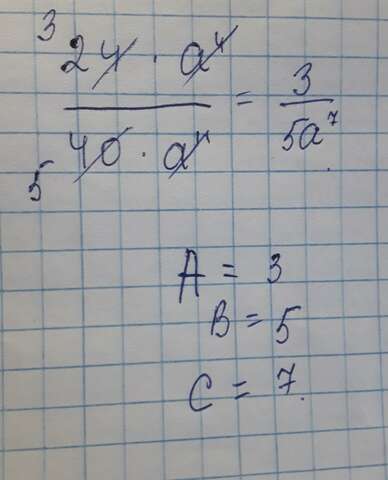 3
24 · a⁴
40 · a
5
= 3
5a⁷
A = 3
B = 5
C = 7.